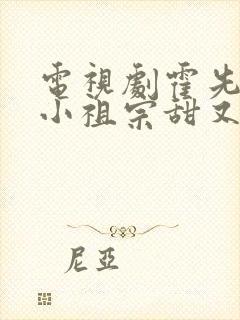 電視劇霍先
小祖宗甜又
尼亞